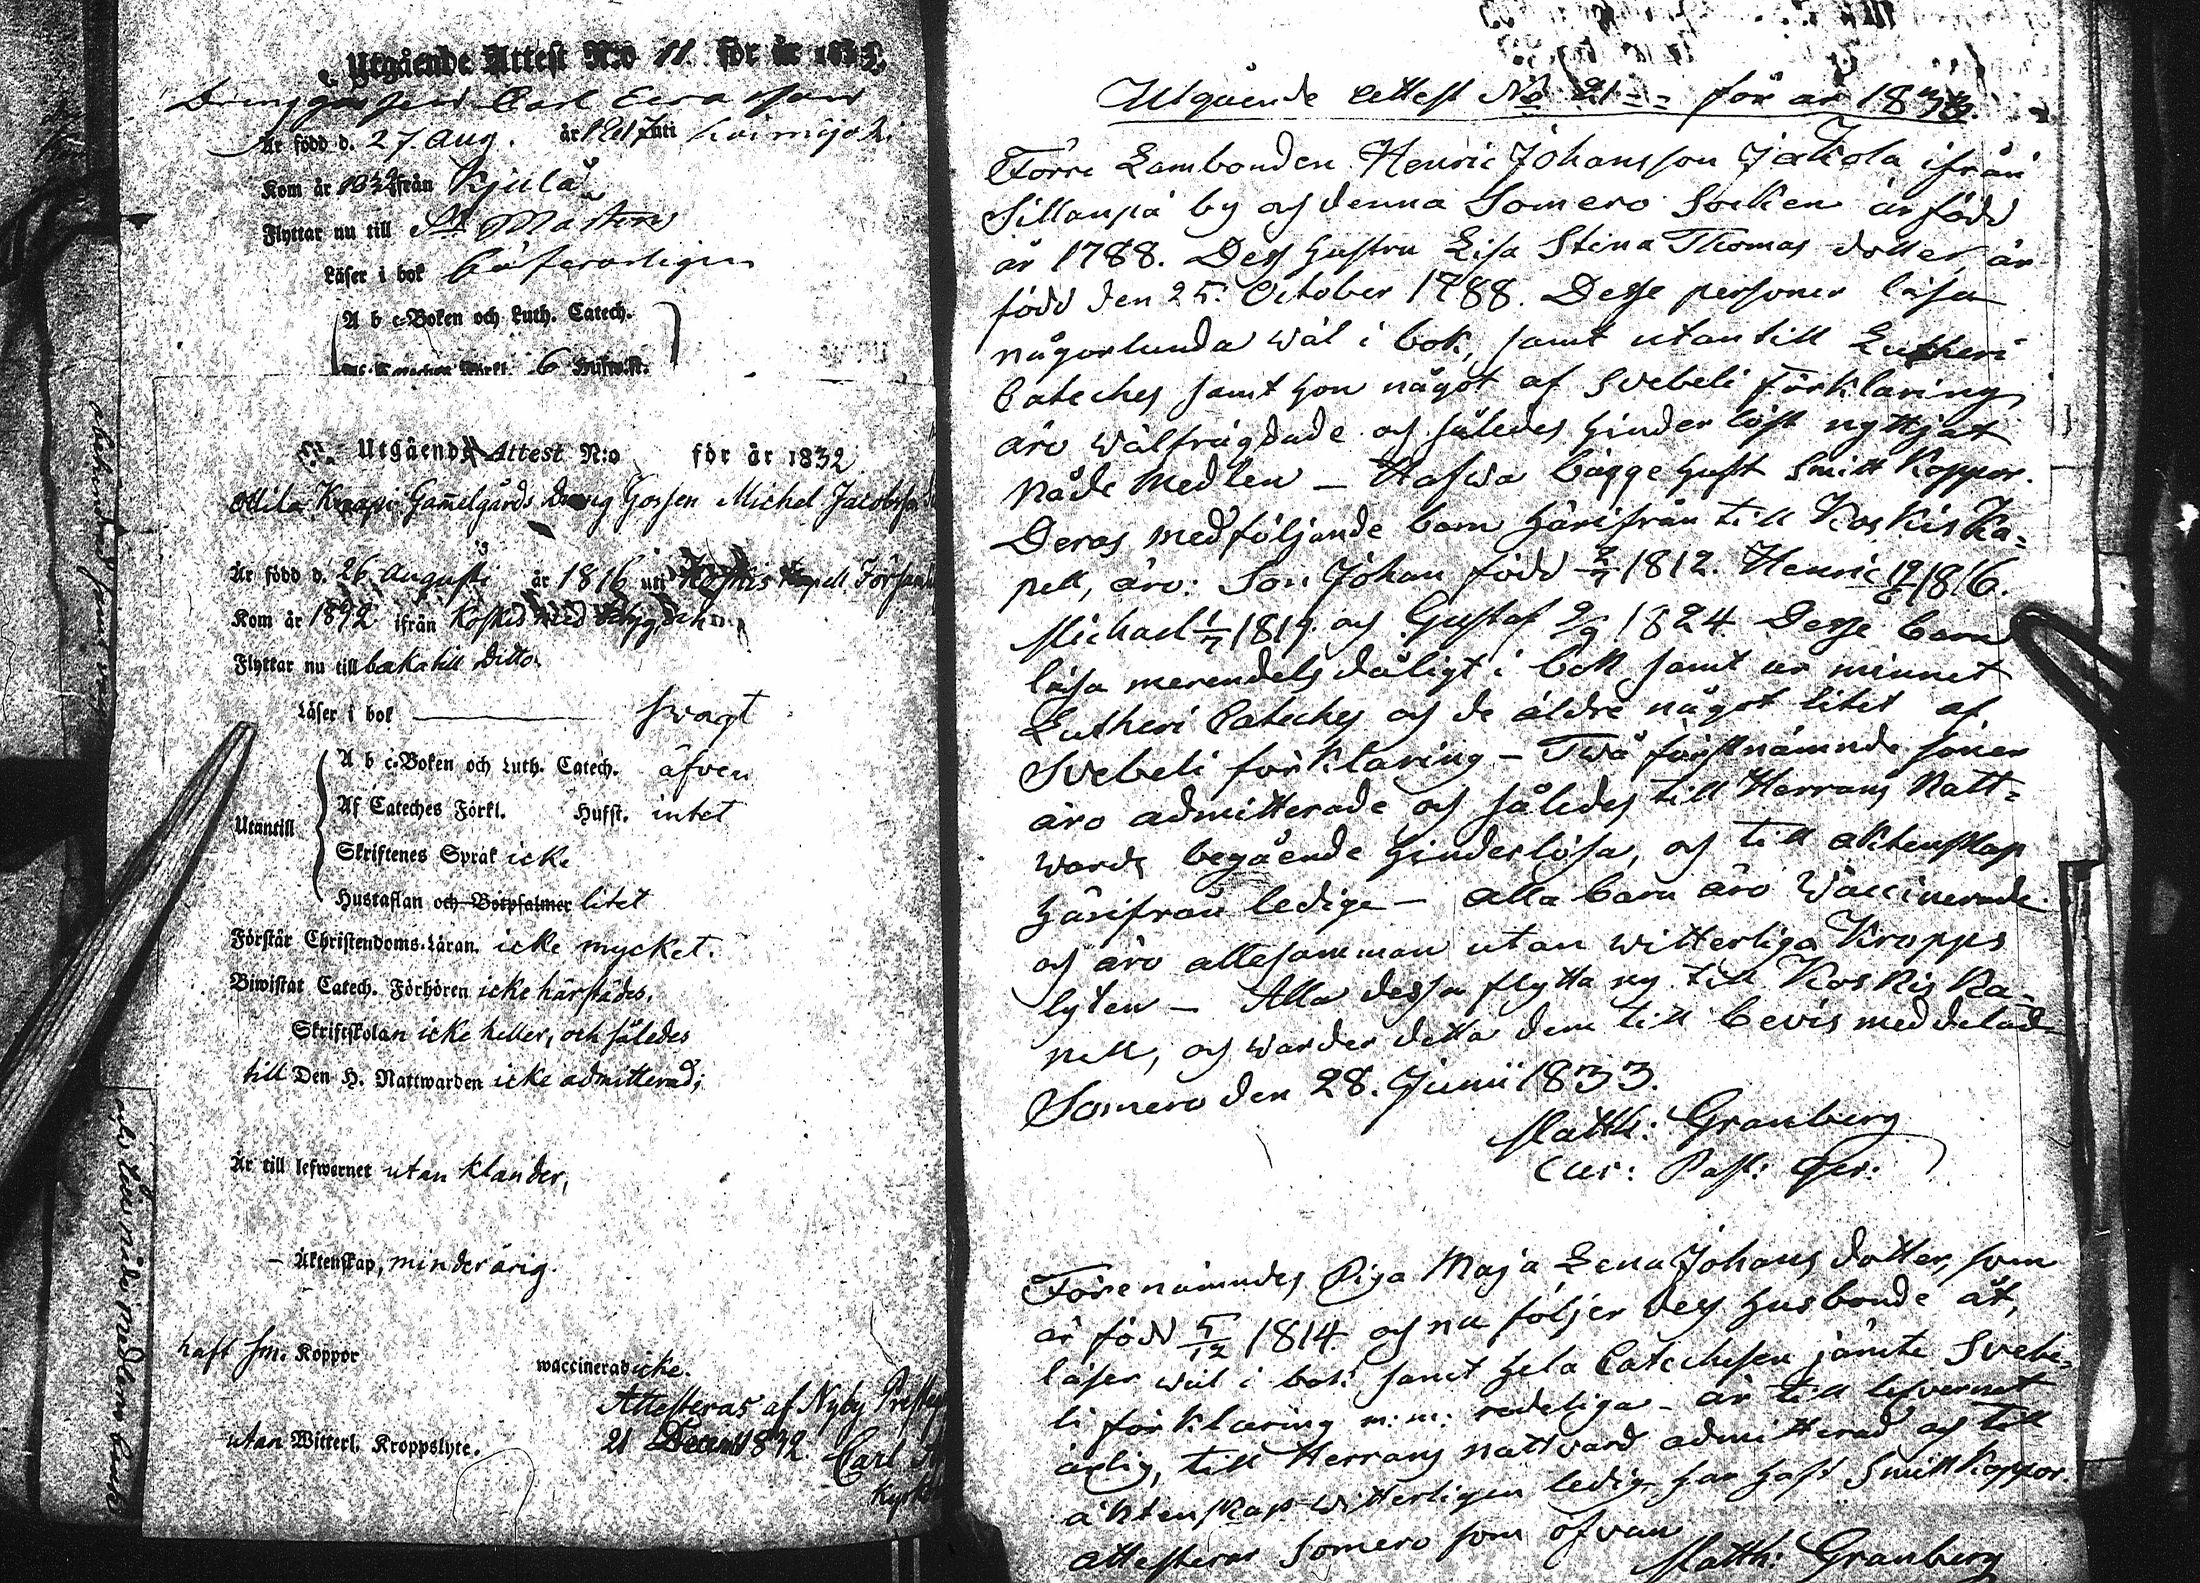 Utgående Attest N:o 11. för år 1832.
Dränggossen Carl Ersasson
Är född d. 27. Aug. år uti
Kom år 1832 från Kjula
Flyttar nu till St Mårtens
Läser i bok
A b c-Boken och Luth. Catech.
6 Hufst.
Utgående Attest N:o för år 1832
Gammelgårds Dräng Gossen Michel Jacobsson
Är född d. 26. Augusti år 1816 uti Koskis Kapell Församl
Kom år 1832 ifrån Koskis med betyg
Flyttar nu till baka till Ditto.
Läser i bok svagt
A b c-Boken och Luth. Catech. äfven
Af Cateches Förkl. Hufst. intet
Utantill
Skriftenes Språk icke
Hustaflan och Botpsalmer litet
Förstår Christendoms-Läran. icke mycket.
Biwistat Catech. Förhören icke härstädes,
Skriftskolan icke heller, och således
till Den H. Nattwarden icke admitterad;
Är till lefwernet utan klander,
- Äktenskap, minderårig.
haft Sm. Koppor waccinerad icke.
Attesteras af Nyby Prestg
utan Witterl. Kroppslyte. 21 Decemb 1832. Carl
Utgående Attest No 21 -- för år 1833.
Förre Lambonden Henric Johansson Jakola ifrån
Sillanpä by och denna Somero Socken är född
år 1788. Dess hustru Lisa Stina Thomas dotter är
född den 25. October 1788. Desse personer läsa
någorlunda wäl i bok, samt utantill Lutheri
Cateches samt hon något af Svebeli förklaring,
äro wälfrägdade och således hinderlöst nyttjat
nåde medlen – Hafwa bägge haft Smitt Koppor.
Deras medföljande barn härifrån till Koskis Ka=
pell, äro: Son Johan född 2/7 1812. Henric 19/6 1816.
Michael 1/7 1819. och Gustaf 9/9 1824. Desse barn
läsa merendels dåligt i bok samt ur minnet
Lutheri Cateches och de äldre något litet af
Svebeli förklaring – Twå förstnämnde söner
äro admitterade och således till Herrans Natt=
wards begående hinderlösa, och till äktenskap
härifrån ledige – alla barn äro Waccinerade
och äro allesamman utan witterliga Kropps
lyten – Alla dessa flytta ny till Koskis Ka=
pell, och warder detta dem till bevis meddelad
Somero den 28. Junii 1833.
Matth: Granberg
Cur: Past: Ger:
Förenämndes Piga Maja Lena Johans dotter, som
är född 5/12 1814. och nu följer dess husbonde åt,
läser wäl i bok samt hela Catechesen jämte Svebe=
li förklaring m: m: redeliga – är till lefvernet
ärlig, till Herrans nattvard admitterad och till
äktenskap witterligen ledig. har haft Smitt Koppor.
attesterar Somero som ofvan
Matth: Granberg